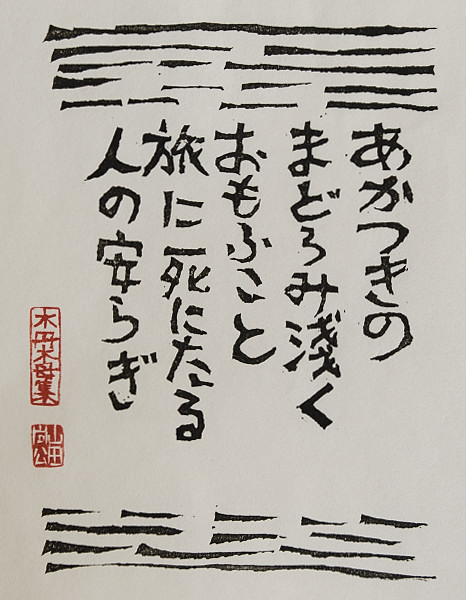 あかつきの
まどろみ浅く
おもふこと
旅に死にたる
人の安らぎ